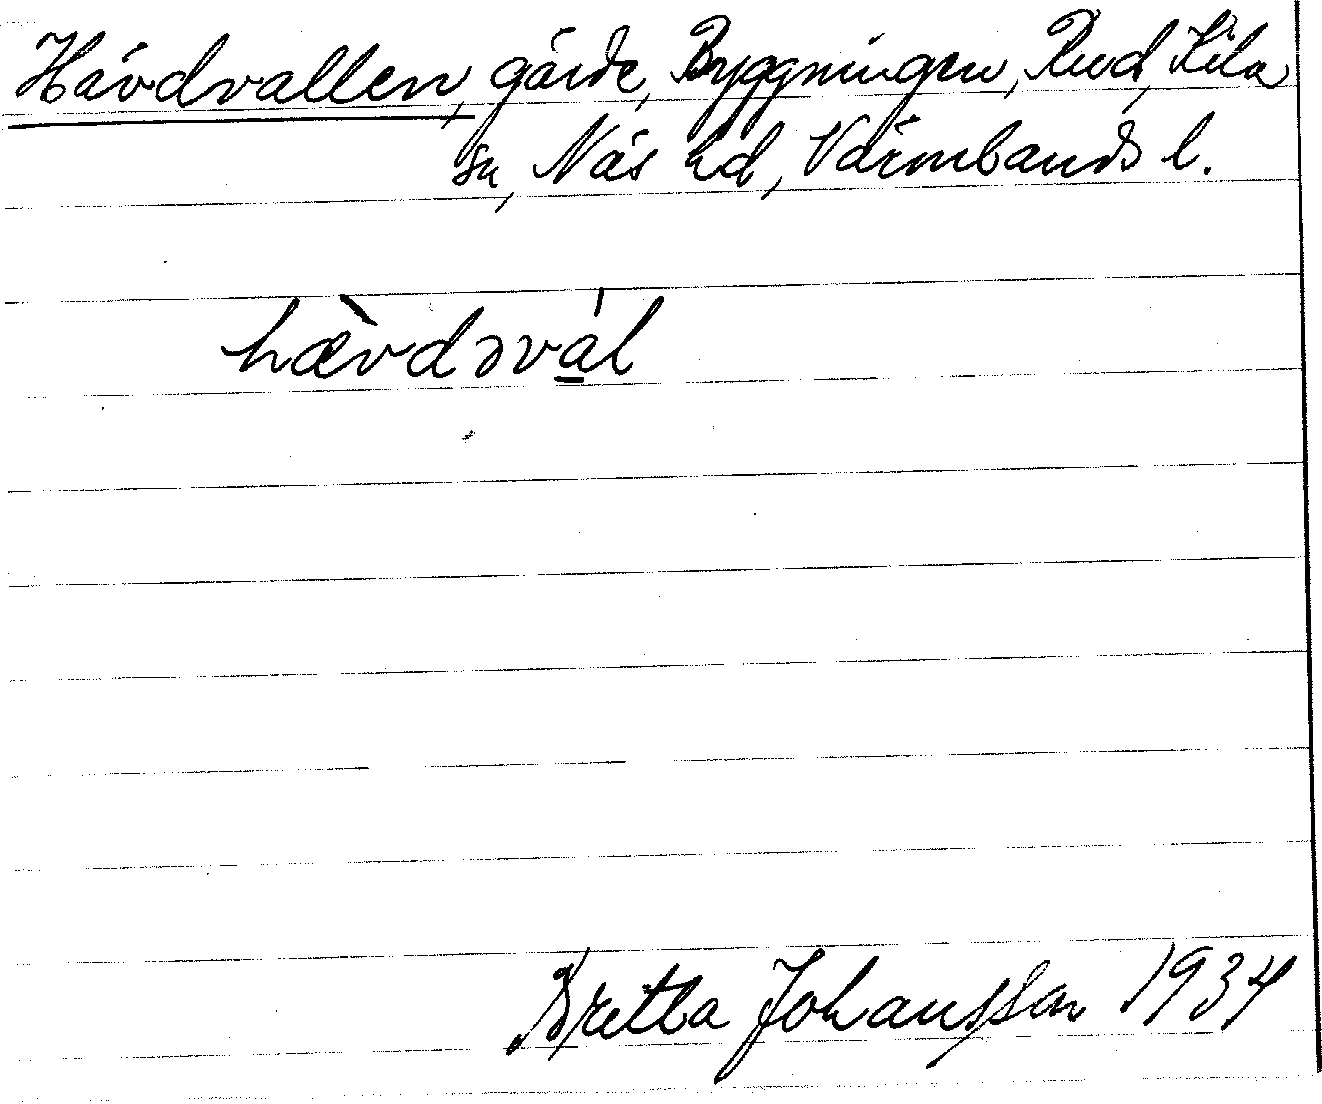 Hävdvallen, gärde, Byggningen, Rud, Kila
sn, Näs hd, Värmlands l.
hæ̀vdəvál
Britta Johansson 1934